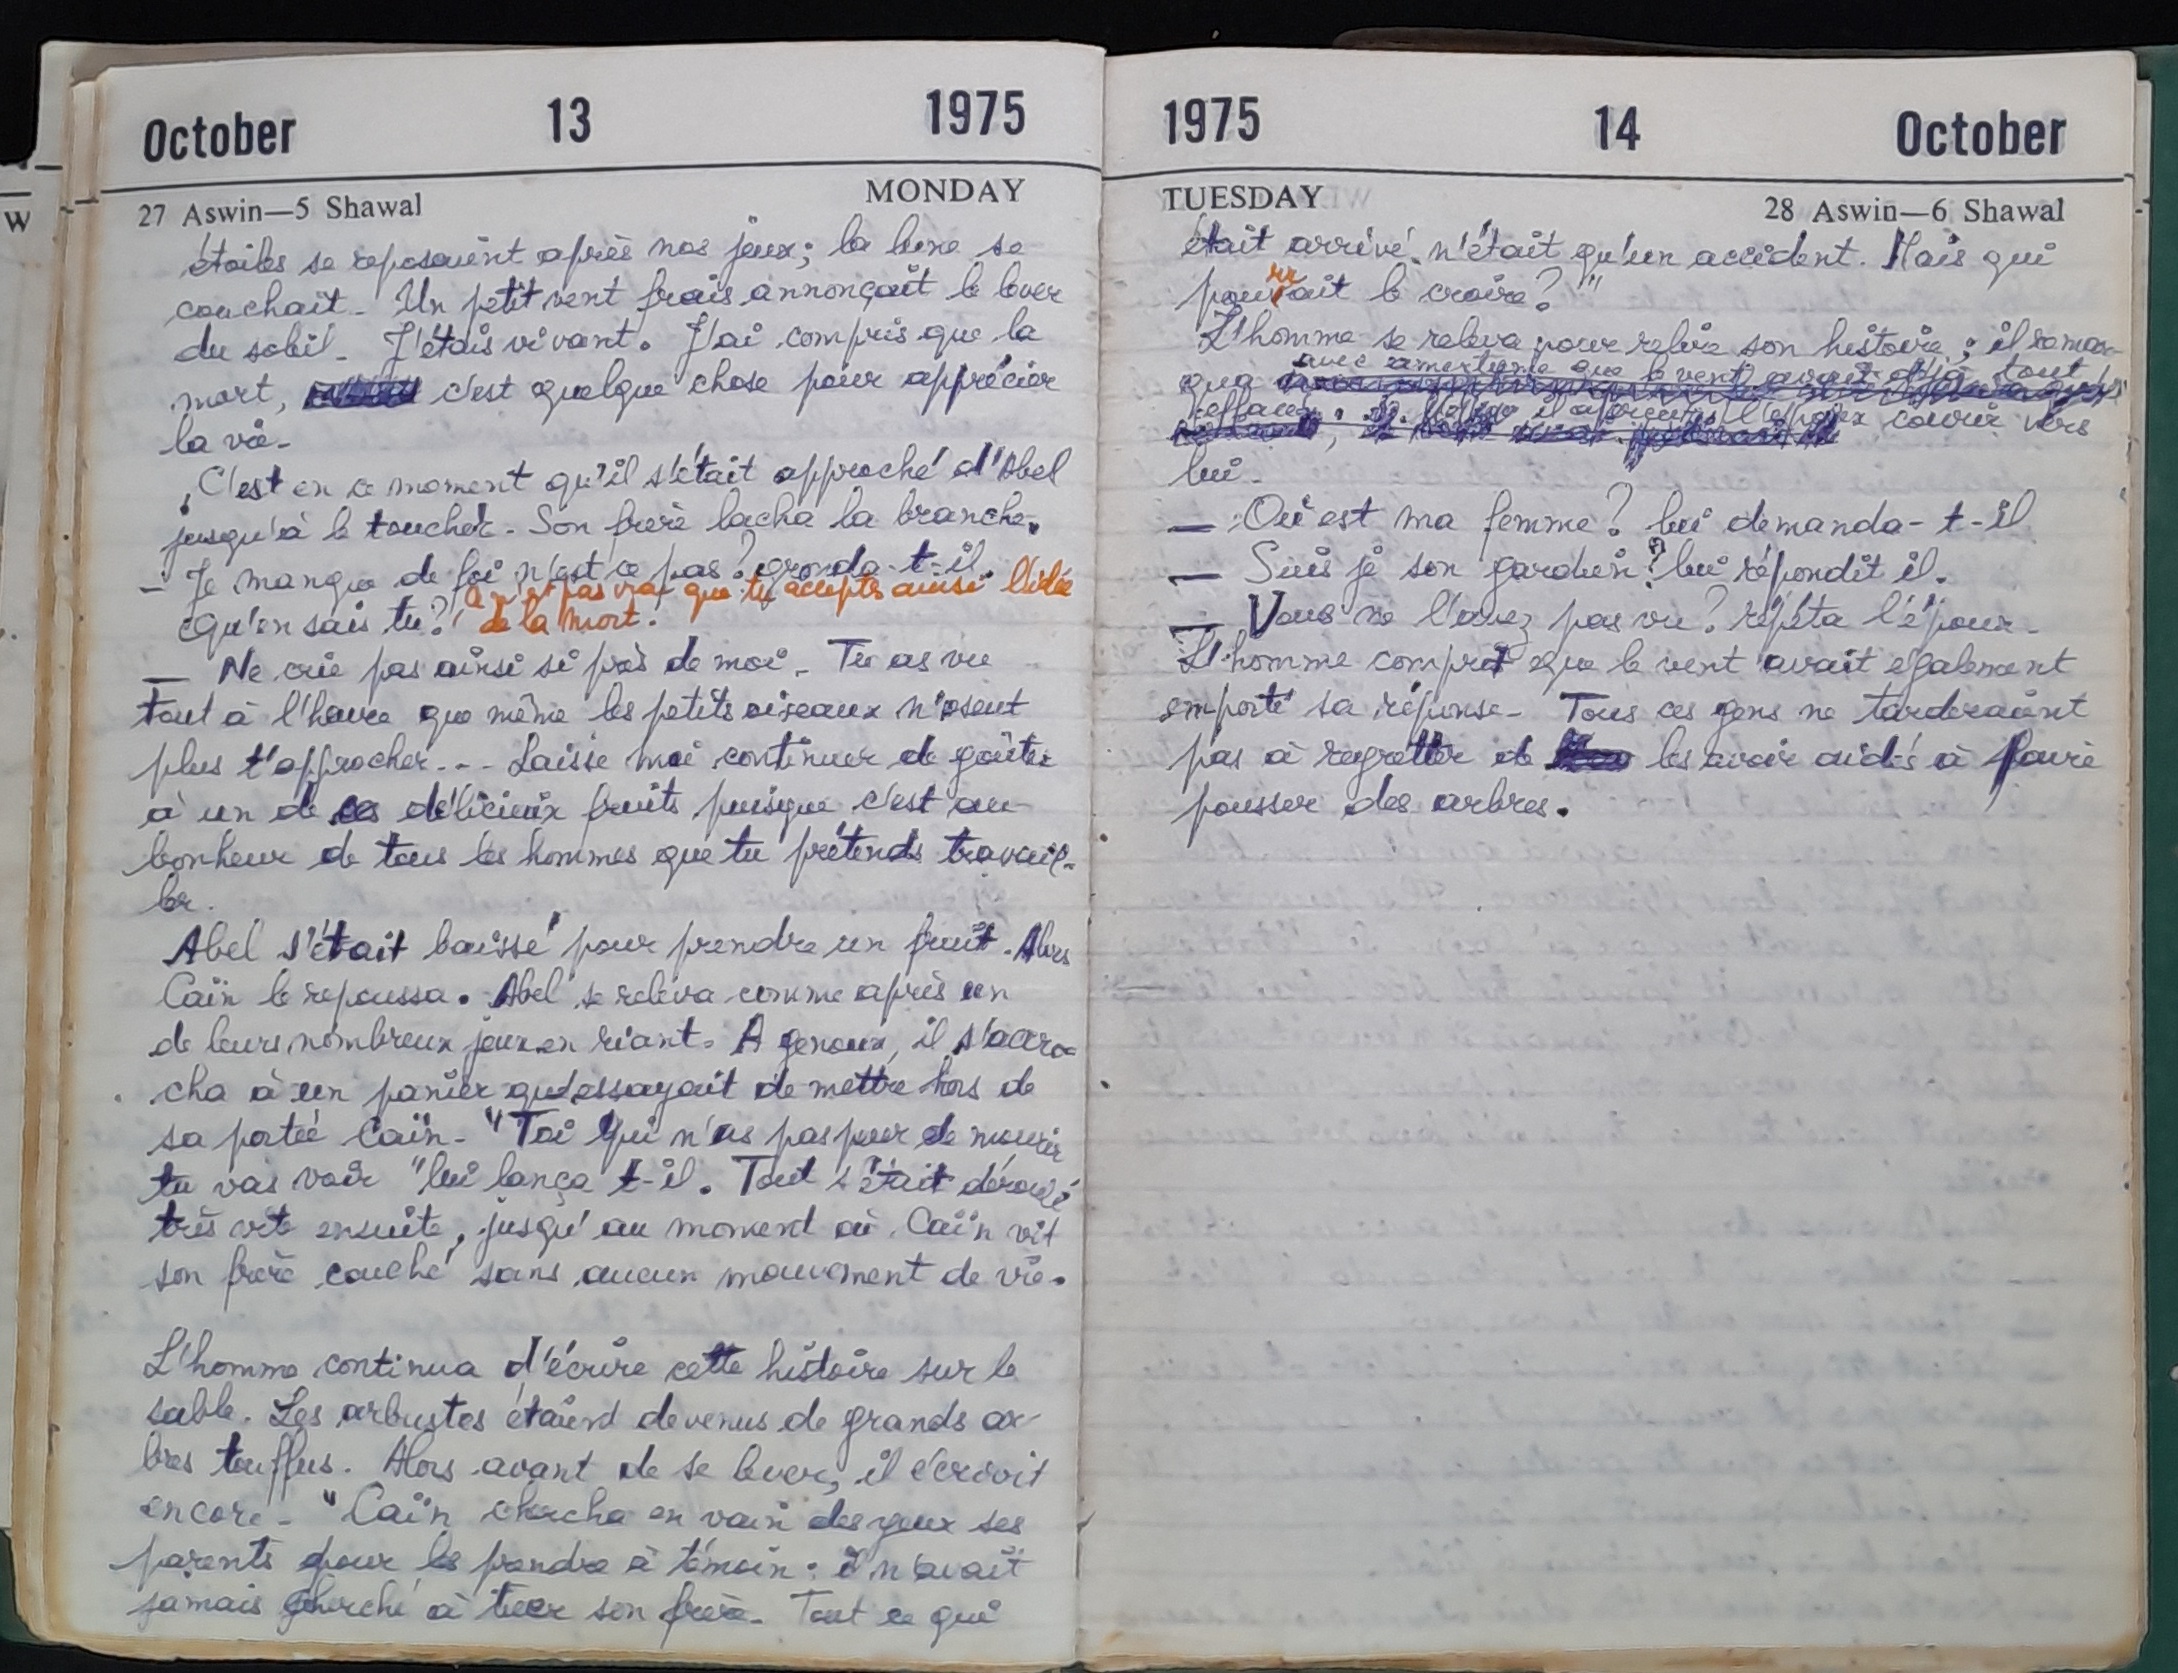 October 13 1975
27 Aswin—5 Shawal MONDAY
étoiles se reposaient après nos jeux; la lune se
couchait. Un petit vent frais annonçait le lever
du soleil. J'étais vivant. J'ai compris que la
mort, c'est quelque chose pour apprécier
la vie.
C'est en ce moment qu'il s'était approché d'Abel
jusqu'à le toucher. Son frère lacha la branche.
– Je manque de foi n'est ce pas? gronda-t-il.
qu'en sais tu? Ce n'est pas vrai que tu acceptes ainsi l'idée
de la mort.
— Ne crie pas ainsi si près de moi. Tu as vu
tout à l'heure que même les petits oiseaux n'osent
plus t'approcher... Laisse moi continuer de goûter
à un de ces délicieux fruits puisque c'est au
bonheur de tous les hommes que tu prétends travail-
ler.
Abel s'était baissé pour prendre un fruit. Alors
Caïn le repoussa. Abel se releva comme après un
de leurs nombreux jeux en riant. A genoux, il s'accro-
cha à un panier qu'essayait de mettre hors de
sa portée Caïn. "Toi qui n'as pas peur de mourir
tu vas voir" lui lança t-il. Tout s'était déroulé
très vite ensuite, jusqu'au moment où Caïn vit
son frère couché sans aucun mouvement de vie.
L'homme continua d'écrire cette histoire sur le
sable. Les arbustes étaient devenus de grands ar-
bres touffus. Alors avant de se lever, il écrivit
encore. "Caïn chercha en vain des yeux ses
parents pour les prendre à témoin: il n'avait
jamais cherché à tuer son frère. Tout ce qui
1975 14 October
TUESDAY 28 Aswin—6 Shawal
était arrivé n'était qu'un accident. Mais qui
pourrait le croire?"
L'homme se releva pour relire son histoire; il remar-
qua avec amertume que le vent avait déjà tout
effacé. il aperçut l'époux courir vers
lui.
— Où est ma femme? lui demanda-t-il
— Suis je son gardien? lui répondit il.
— Vous ne l'avez pas vu? répéta l'époux.
L'homme comprit que le vent avait également
emporté sa réponse. Tous ces gens ne tarderaient
pas à regretter de les avoir aidés à faire
pousser des arbres.